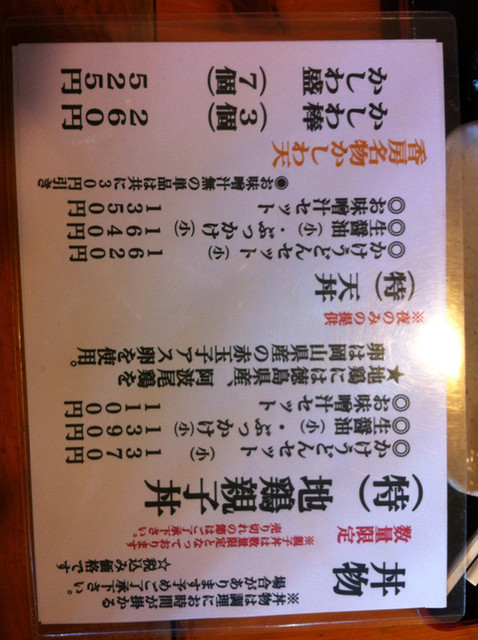 丼物
※丼物は調理にお時間が掛かる
場合があります予めご了承下さい。
☆税込み価格です
数量限定
※親子丼は数量限定となっております
売り切れの節はご了承下さい。
（特）地鶏親子丼
◎かけうどんセット（小） 1370円
◎生醤油（小）・ぶっかけ（小） 1390円
◎お味噌汁セット 1100円
★地鶏には徳島県産、阿波尾鶏を
卵は岡山県産の赤玉子アスタ卵を使用。
※夜のみの提供
（特）天丼
◎かけうどんセット（小） 1620円
◎生醤油（小）・ぶっかけ（小） 1640円
◎お味噌汁セット 1350円
◉お味噌汁無の単品は共に30円引き
香房名物かしわ天
かしわ棒（3個） 260円
かしわ盛（7個） 525円